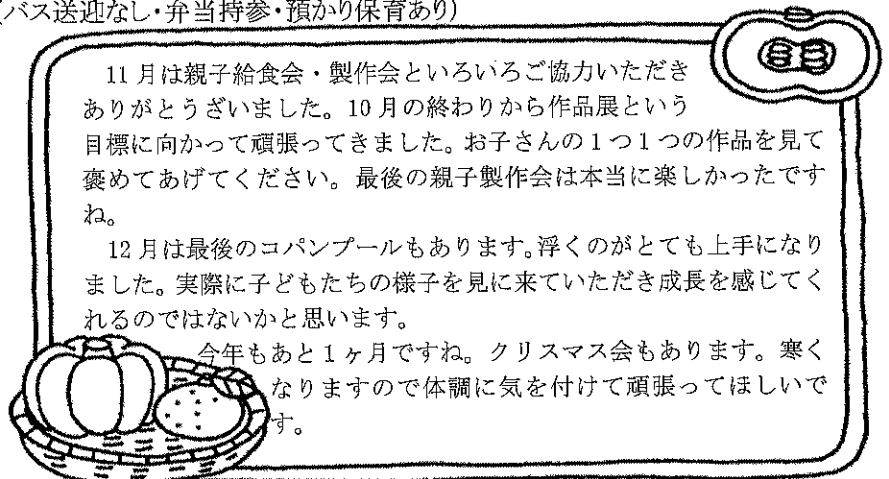 (バス送迎なし・弁当持参・預かり保育あり)
11月は親子給食会・製作会といろいろご協力いただき
ありがとうざいました。10月の終わりから作品展という
目標に向かって頑張ってきました。お子さんの1つ1つの作品を見て
褒めてあげてください。最後の親子製作会は本当に楽しかったです
ね。
12月は最後のコパンプールもあります。浮くのがとても上手になり
ました。実際に子どもたちの様子を見に来ていただき成長を感じてく
れるのではないかと思います。
今年もあと1ヶ月ですね。クリスマス会もあります。寒く
なりますので体調に気を付けて頑張ってほしいで
す。